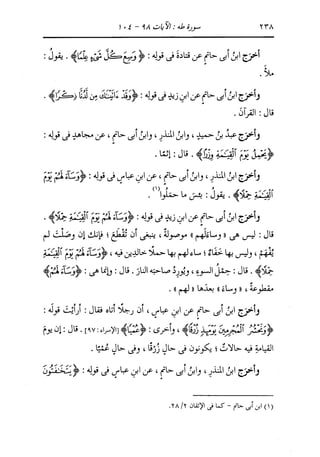 ٢٣٨
سورة طه : الآيات ٩٨ - ١٠٤
أخرج ابنُ أبى حاتمٍ عن قتادةَ فى قولِه : ﴿ وَسِعَ كُلَّ شَىْءٍ عِلْمًا ﴾ . يقولُ :
ملأَ .
وأخرَج ابنُ أبى حاتمٍ عن ابنِ زيدٍ فى قولِه : ﴿ وَقَدْ ءَاتَيْنَٰكَ مِن لَّدُنَّا ذِكْرًا ﴾ .
قال : القرآنَ .
وأخرَج عبدُ بنُ حميدٍ ، وابنُ المنذرِ ، وابنُ أبى حاتمٍ ، عن مجاهدٍ فى قولِه :
﴿ يَحْمِلُ يَوْمَ ٱلْقِيَٰمَةِ وِزْرًا ﴾ . قال : إثمًا .
وأخرَج ابنُ المنذرِ ، وابنُ أبى حاتمٍ ، عن ابنِ عباسٍ فى قولِه : ﴿ وَسَآءَ لَهُمْ يَوْمَ
ٱلْقِيَٰمَةِ حِمْلًا ﴾ . يقولُ : بئس ما حمَلوا (١) .
وأخرَج ابنُ أبى حاتمٍ عن ابنِ زيدٍ فى قولِه : ﴿ وَسَآءَ لَهُمْ يَوْمَ ٱلْقِيَٰمَةِ حِمْلًا ﴾ .
قال : ليس هى « وساءَلَهم » موصولةً ، ينبغى أن تُقطَعَ ؛ فإنك إن وصَلْتَ لم
تُفهَمْ ، وليس بها خفاءٌ ؛ ساء لهم بها حملًا خالدين فيه ، ﴿ وَسَآءَ لَهُمْ يَوْمَ ٱلْقِيَٰمَةِ
حِمْلًا ﴾ . قال : حِمْلُ السوءِ ، ويُورِدُ صاحبَه النارَ . قال : وإنما هى : ﴿ وَسَآءَ لَهُمْ ﴾
مقطوعةٌ ، « وساءَ » بعدَها « لهم » .
وأخرَج ابنُ أبى حاتمٍ عن ابنِ عباسٍ ، أن رجلًا أتاه فقال : أرأيْتَ قولَه :
﴿ وَنَحْشُرُ ٱلْمُجْرِمِينَ يَوْمَئِذٍ زُرْقًا ﴾ ، وأخرى : ﴿ عُمْيًا ﴾ [الإسراء: ٩٧] . قال : إن يومَ
القيامةِ فيه حالاتٌ ؛ يكونون فى حالٍ زُرْقًا ، وفى حالٍ عُمْيًا .
وأخرَج ابنُ المنذرِ ، وابنُ أبى حاتمٍ ، عن ابنِ عباسٍ فى قولِه : ﴿ يَتَخَٰفَتُونَ
(١) ابن أبى حاتم - كما فى الإتقان ٢/ ٢٨.